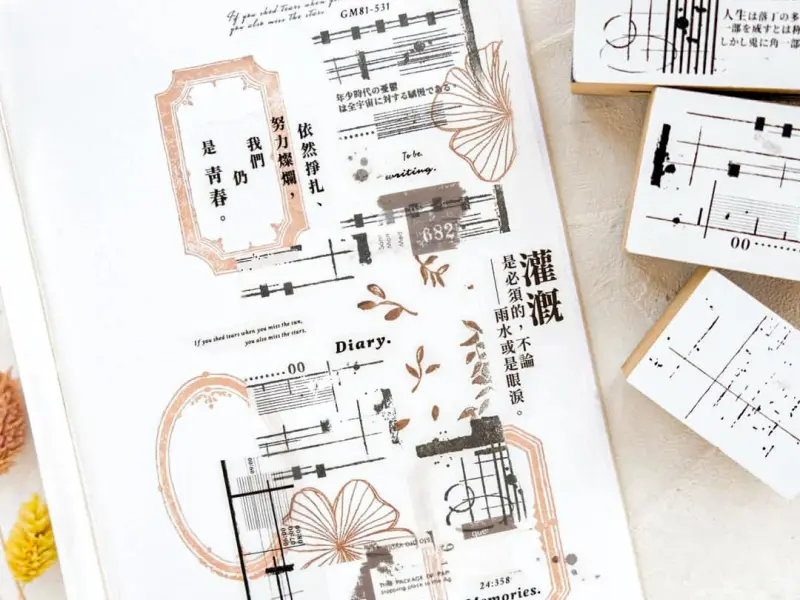 If you shed tears when you
you also miss the stars.
GM81-531
年少時代の憂鬱
は全宇宙に対する驕慢である。
To be
writing.
依然掙扎、
努力燦爛，
我們
仍
是青春。
682
灌溉
是必須的，不論
——雨水或是眼淚。
If you shed tears when you miss the sun,
you also miss the stars.
Diary.
00
THIS PACKAGE OF PAP
24:358
Memories.
人生は落丁の多
一部を成すとは称
しかし兎に角一部
00